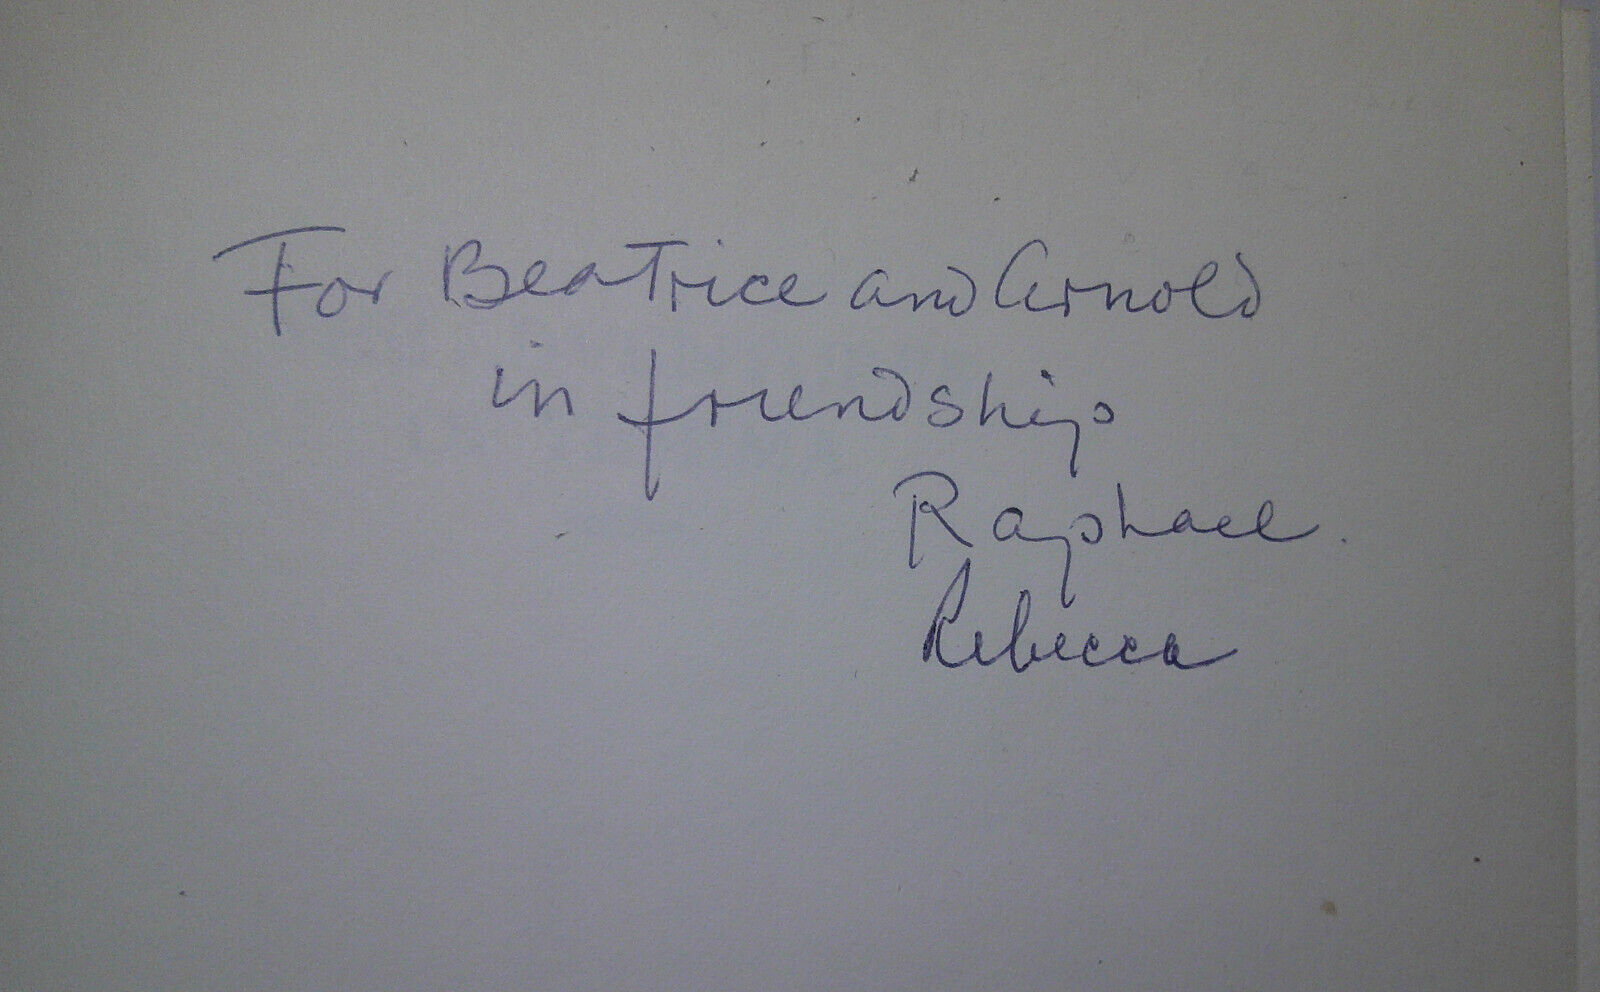 For Beatrice and Arnold
in friendship
Raphael.
Rebecca